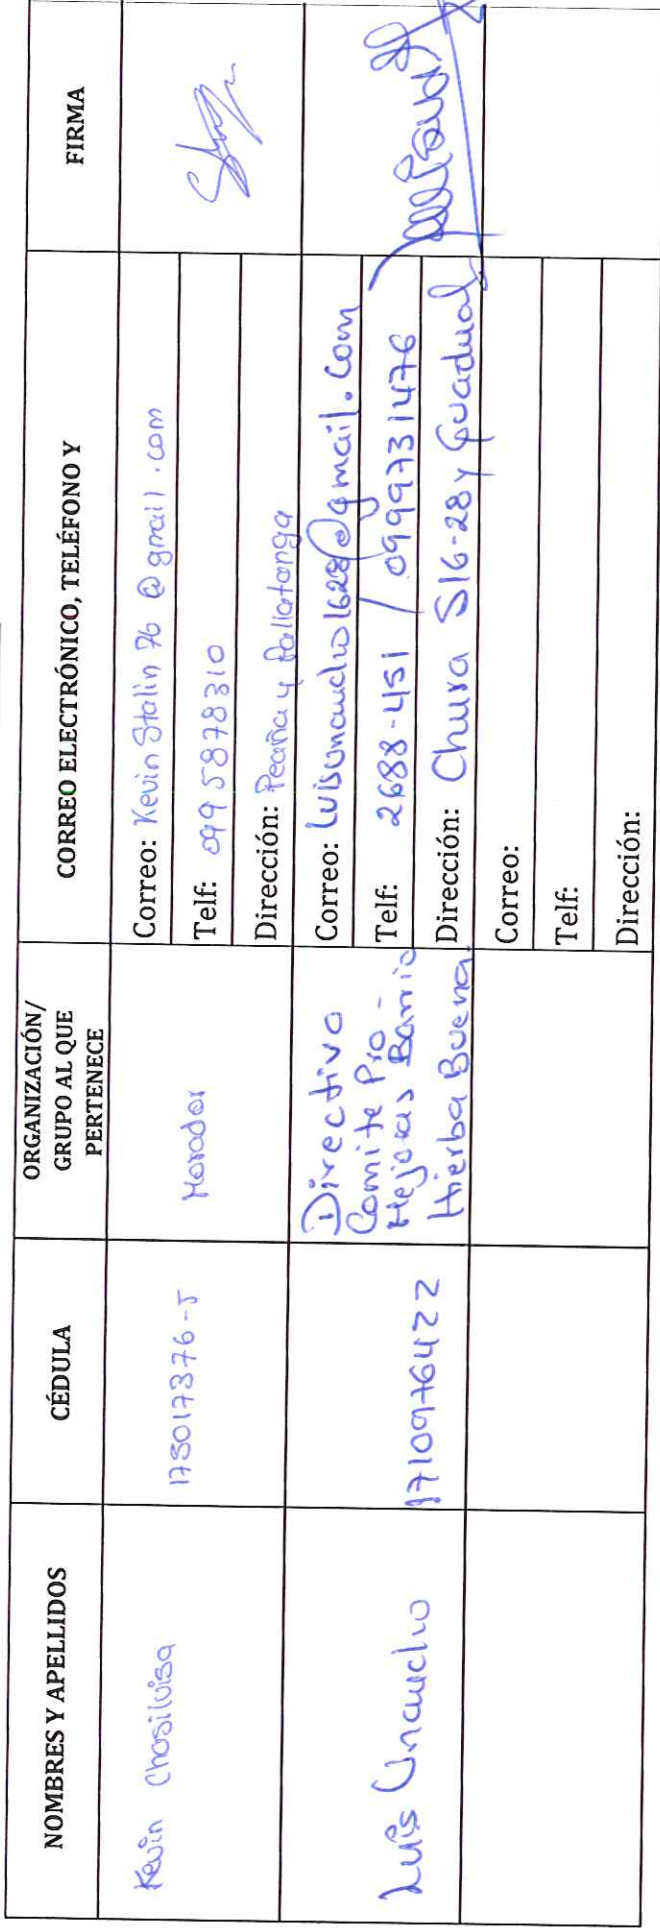 NOMBRES Y APELLIDOS
CÉDULA
ORGANIZACIÓN/
GRUPO AL QUE
PERTENECE
CORREO ELECTRÓNICO, TELÉFONO Y
FIRMA
Kevin Chasiluisa
175017376-5
Morador
Correo: Kevin Stalin 76 @ gmail .com
Telf: 0995878310
Dirección: Peaña y Pallatanga
Luis Unaucho
1710976422
Directivo
Comite Pro-
Mejoras Barrio
Hierba Buena
Correo: luisunaucho1628@gmail.com
Telf: 2688-451 / 0999731476
Dirección: Chura S16-28 y Guadual
Correo:
Telf:
Dirección: